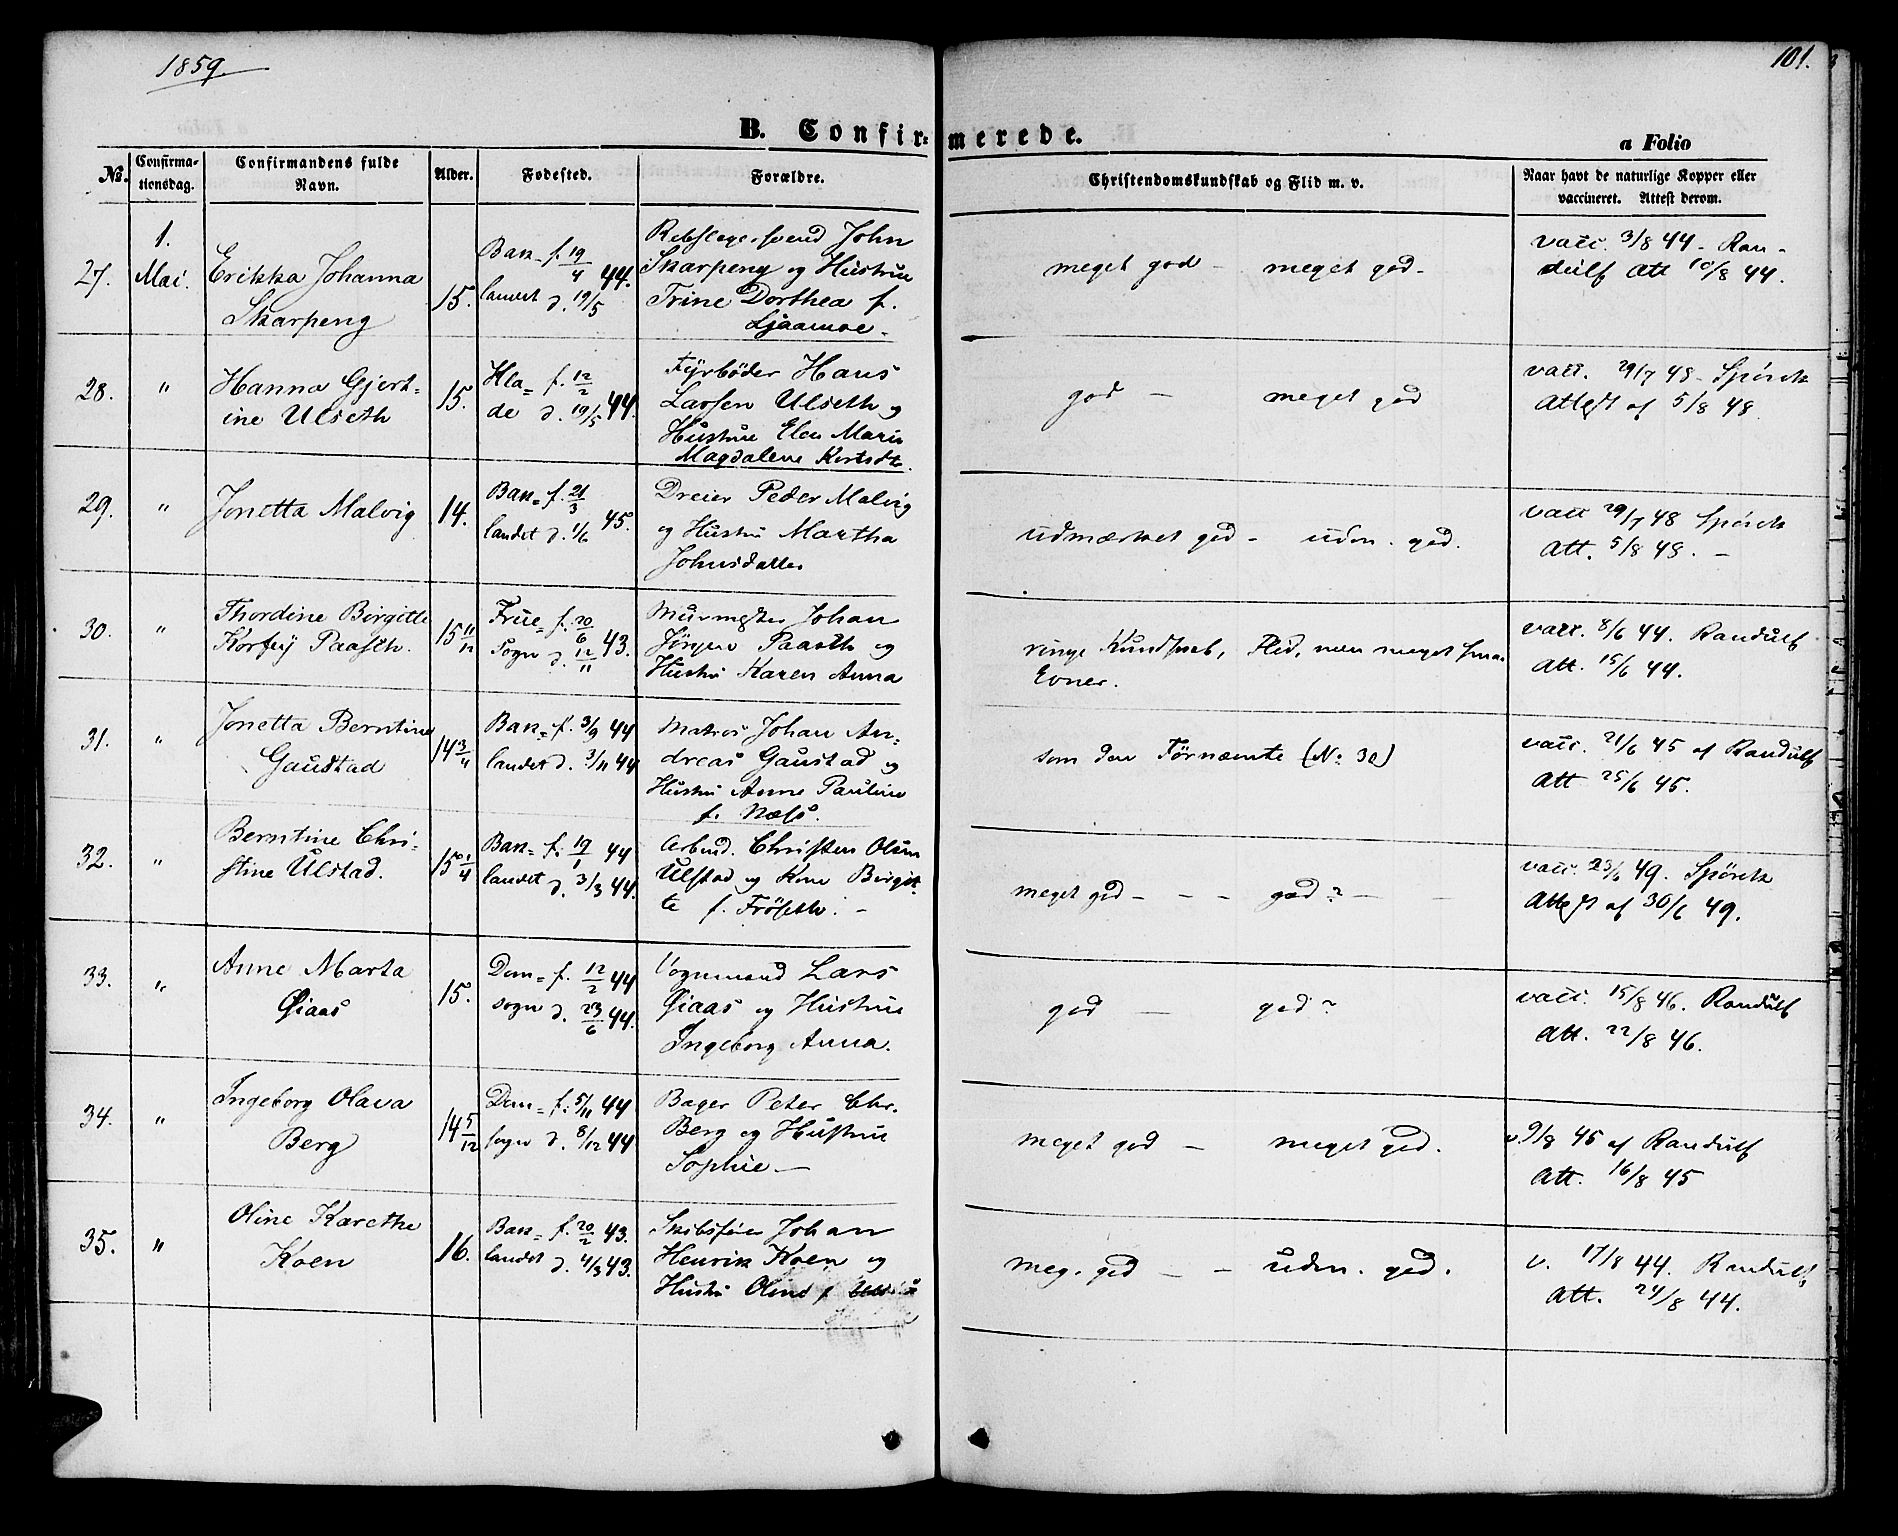 1859.
101.
B. Confir= merede.
a Folio
No. Confirma-tionsdag. Confirmandens fulde Navn. Alder. Fødested. Forældre. Christendomskundskab og Flid m. v. Naar havt de naturlige Kopper eller vaccineret. Attest derom.
1.
27. Mai. Erikka Johanna
Skarpeng
15.
Bak= f. 19/4 44.
landet d. 19/5
John
Skarpeng og Hustrue
Trine Dorthea f.
Ljaamoe.
meget god - meget god-
vacc. 3/8 44 - Ran-
dulf Att 10/8 44.
28. " Hanna Gjert-
ine Ulseth
15.
Hla= f. 12/2 44.
de d. 19/5
Fyrbøder Hans
Larsen Ulseth og
Hustrue Elen Marie
Magdalene
god - meget god
vacc. 29/7 48 - Spørck
Attest af 5/8 48.
29. " Jonetta Malvig
14.
Bak= f. 21/3 45.
landet d. 1/6
Dreier Peder Malvig
og Hustru Martha
Johnsdatter
udmærket god - udm. god.
vacc 29/7 48 Spørck
Att. 5/8 48. -
30. " Thordine Birgitte
Paasch.
15 11/12
Frue= f. 20/6 43.
Sogn d. 12/11
Murmester Johan
Jørgen Paasch og
Hustru Karen Anna
ringe Kundskab, Flid, men meget smaa
Evner.
vacc. 8/6 44. Randulf
Att. 15/6 44.
31. " Jonetta Berntine
Gaustad
14
Bak= f. 3/9 44
landet d. 3/11 44
Matros Johan An-
dreas Gaustad og
Hustru Anne Pauline
f. Næss.
som den Førnævnte (No 30)
vacc. 21/6 45 af Randulf
Att 25/6 45.
32. " Berntine Chri-
stine Ulstad.
15 1/4
Bak= f. 19/1 44
landet d. 3/3 44.
Arbmd. Christen Olsen
Ulstad og Kone Birgit-
te f. Frøseth. -
meget god - - - god? -
vacc. 23/6 49. Spørck
Attest af 30/6 49.
33. " Anne Marta
Øiaas
15.
Dom= f. 12/2 44
sogn d. 23/6 44.
Vognmand Lars
Øiaas og Hustrue
Ingeborg Anna.
god - god?
vacc. 15/8 46. Randulf
Att. 22/8 46.
34. " Ingeborg Olava
Berg
14 5/12
Dom= f. 5/11 44
sogn d. 8/12 44
Bager Peter Chr.
Berg og Hustrue
Sophie -
meget god - meget god.
v. 9/8 45 af Randulf
Att. 16/8 45
35. " Oline Karethe
Koen
16.
Bak= f. 20/2 43.
landet d. 4/3 43.
Skibsfører Johan
Henrik Koen og
Hustru Oline f.
meg. god - - udm. god.
v. 17/8 44. Randulf
Att. 24/8 44.